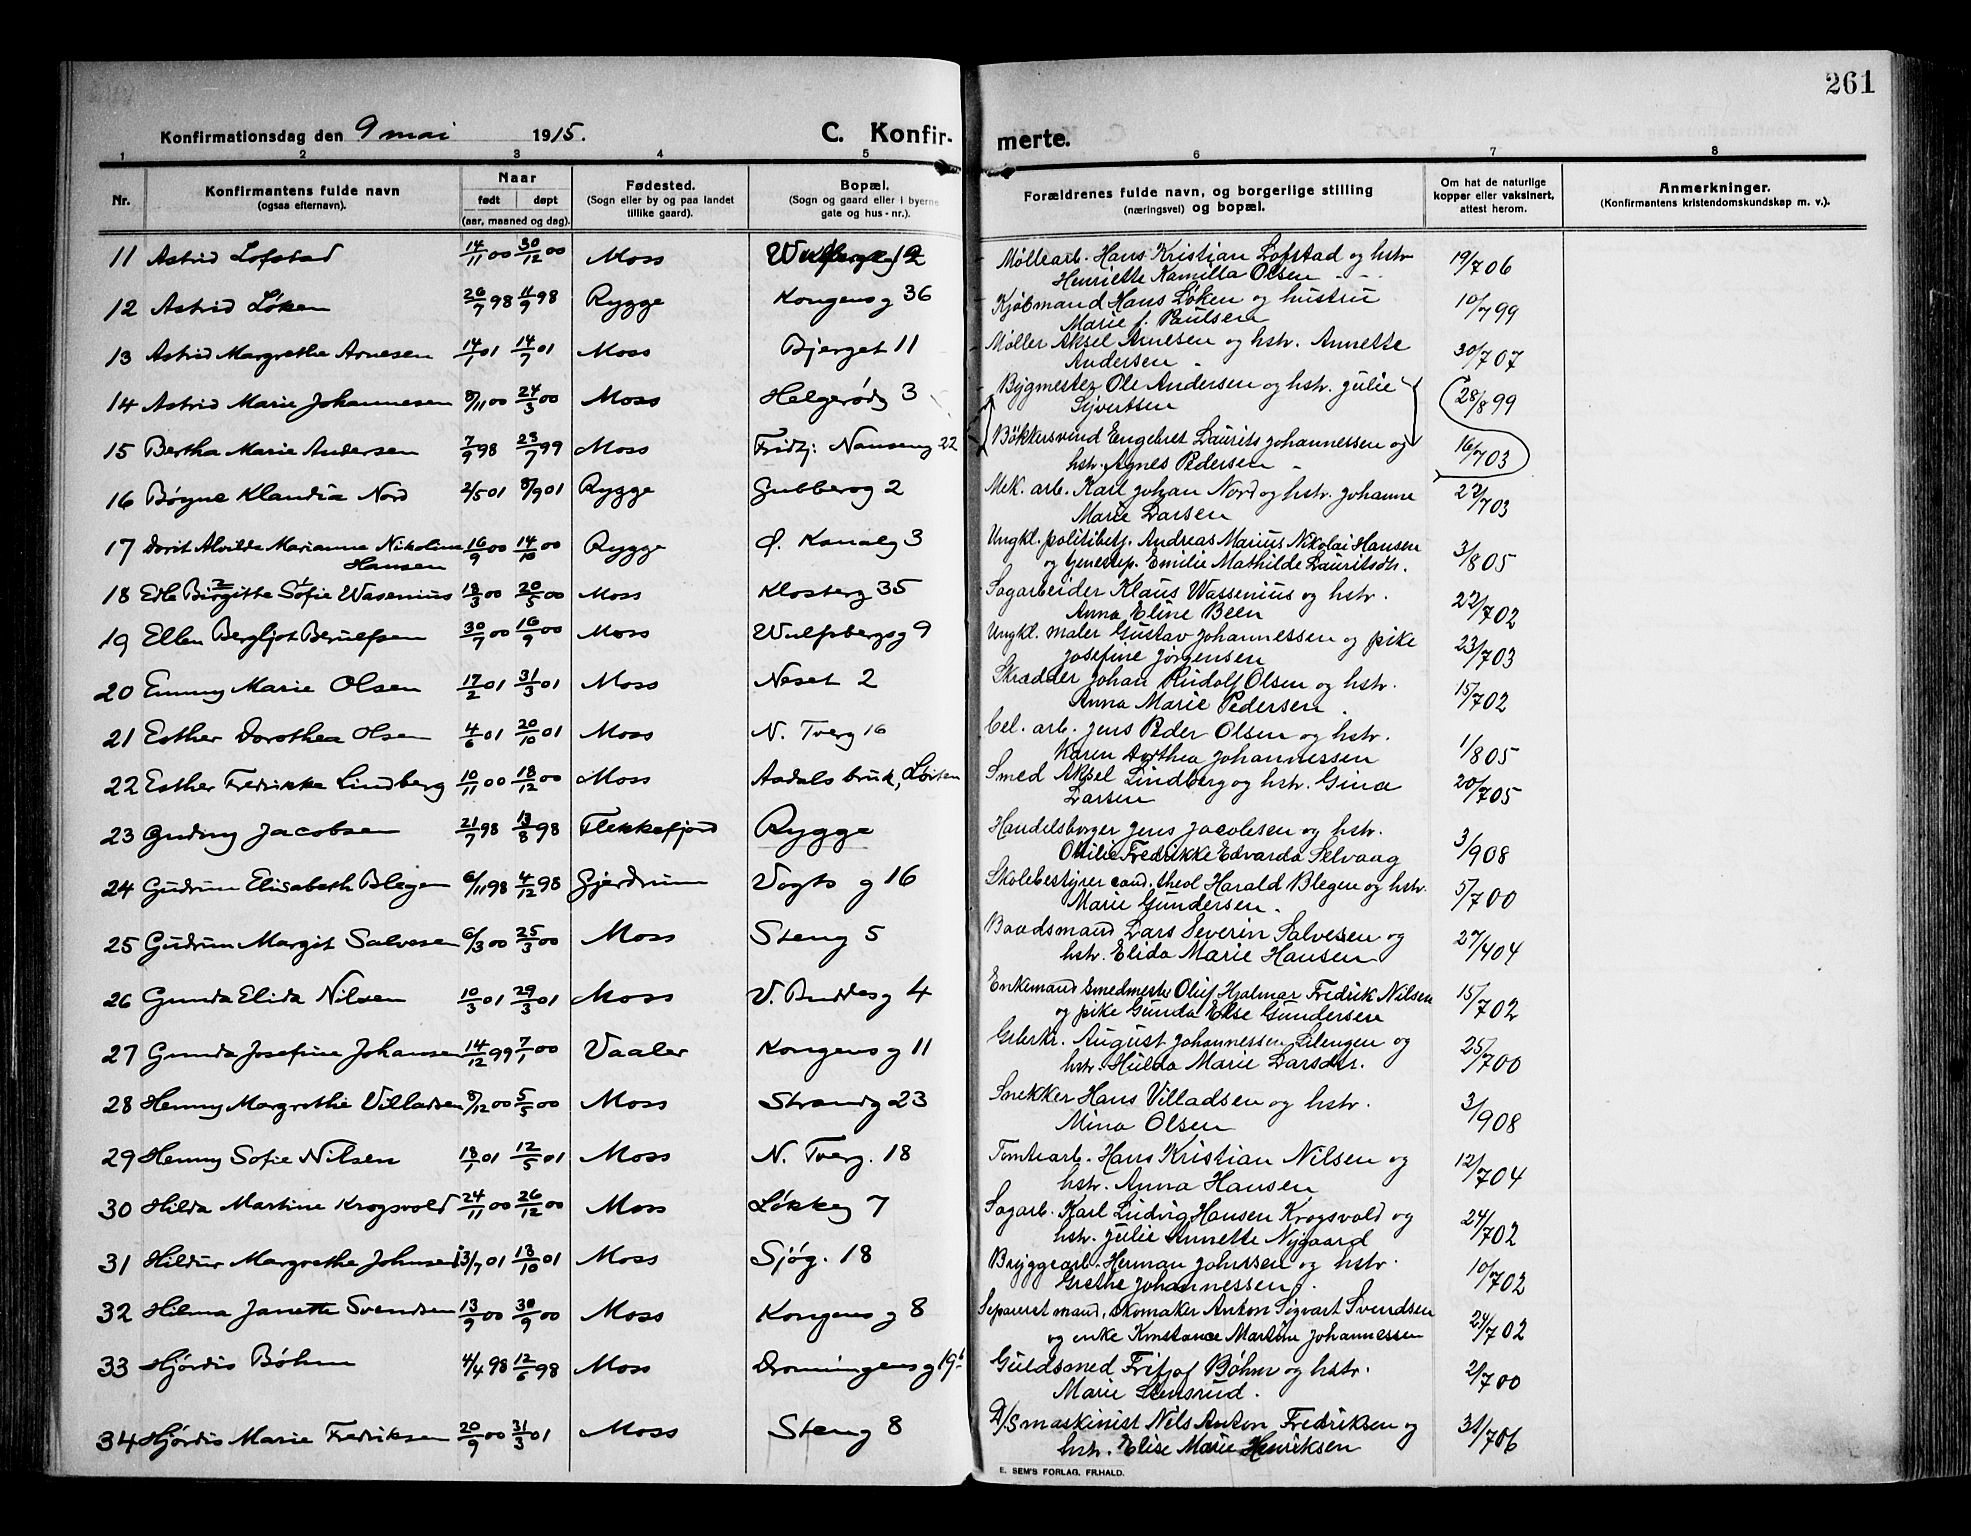 261
Konfirmationsdag den 9 mai 1915.
C. Konfir-
merte.
1 2 3 4 5 6 7 8
Nr.
Konfirmantens fulde navn
(ogsaa efternavn).
Naar
født døpt
(aar, maaned og dag).
Fødested.
(Sogn eller by og paa landet
tillike gaard).
Bopæl.
(Sogn og gaard eller i byerne
gate og hus-nr.).
Forældrenes fulde navn, og borgerlige stilling
(næringsvei) og bopæl.
Om hat de naturlige
kopper eller vaksinert,
attest herom.
Anmerkninger.
(Konfirmantens kristendomskundskap m. v.).
11 Astrid Lofstad 14/11 00 30/12 00 Moss 12 Møllearb. Hans Kristian Lofstad og hstr 19/7 06
Henriette Kamilla Olsen
12 Astrid Løken 26/7 98 11/9 98 Rygge Kongens g 36 Kjøbmand Hans Løken og hustru 10/7 99
Marie f. Paulsen
13 Astrid Margrethe Arnesen 14/7 01 14/7 01 Moss Bjerget 11 Møller Aksel Arnesen og hstr. Annette 30/7 07
Andersen
14 Astrid Marie Johannesen 8/11 00 24/3 00 Moss Helgerødg 3 Bygmester Ole Andersen og hstr. Julie 28/8 99
Sijvertsen
15 Bertha Marie Andersen 7/9 98 23/7 99 Moss Fridtj. Nanseng 22 Bøkkersvend Engebret Laurits Johannessen og 16/7 03
hstr. Agnes Pedersen
16 Børgne Klaudia Nord 2/5 01 8/9 01 Rygge Gubberog 2 Mek. arb. Karl Johan Nord og hstr. Johanne 22/7 03
Marie Larsen
17 Dorit Alvilde Marianne Nikoline 16/9 00 14/10 00 Rygge Ø. Kanalg 3 Ungkl. politibetj. Andreas Marius Nikolai Hansen 3/8 05
Hansen og tjenestep. Emilie Mathilde Lauritsdtr.
18 Edle Birgitte Sofie Wasenius 18/3 00 20/5 00 Moss Klosterg 35 Sagarbeider Klaus Wassenius og hstr. 22/7 02
Anna Eline Been
19 Ellen Bergljot Berulfsen 30/7 00 16/9 00 Moss Wulfsbergs g 9 Ungkl. maler Gustav Johannessen og pike 23/7 03
Josefine Jørgensen
20 Emmy Marie Olsen 17/2 01 31/3 01 Moss Neset 2 Skrædder Johan Rudolf Olsen og hstr. 15/7 02
Anna Marie Pedersen
21 Esther Dorothea Olsen 4/6 01 20/10 01 Moss N. Tverg 16 Cel. arb. Jens Peder Olsen og hstr. 1/8 05
Karen Dorthea Johannessen
22 Esther Fredrikke Lindberg 10/11 00 18/12 00 Moss Aadals bruk, Løiten Smed Aksel Lindberg og hstr. Gina 20/7 05
Larsen
23 Gudny Jacobsen 21/7 98 13/8 98 Flekkefjord Rygge Handelsborger Jens Jacobsen og hstr. 3/9 08
Otilie Fredrikke Edvarda Selvaag
24 Gudrun Elisabeth Blegen 6/11 98 4/12 98 Gjerdrum Vogts g 16 Skolebestyrer cand. theol Harald Blegen og hstr. 5/7 00
Marie Gundersen.
25 Gudrun Margit Salvesen 6/3 00 25/3 00 Moss Steng 5 Baadsmand Lars Severin Salvesen og 27/4 04
hstr. Elida Marie Hansen
26 Gunda Elida Nilsen 10/3 01 29/3 01 Moss V. Buddes g 4 Enkemand Smedmester Oluf Hjalmar Fredrik Nilsen 15/7 02
og pike Gunda Else Gundersen
27 Gunda Josefine Johansen 14/12 99 7/1 00 Vaaler Kongens g 11 Gbrkr. August Johannessen Lilengen og 25/7 00
hstr. Hulda Marie Larsdtr.
28 Henny Margrethe Villadsen 8/12 00 5/5 00 Moss Strandg 23 Snekker Hans Villadsen og hstr. 3/9 08
Mina Olsen
29 Henny Sofie Nilsen 18/1 01 12/5 01 Moss N. Tverg. 18 Tomtearb. Hans Kristian Nilsen og 12/7 04
hstr. Anna Hansen
30 Hilda Martine Krogsvold 24/11 00 26/12 00 Moss Løkkeg 7 Sagarb. Karl Ludvig Hansen Krogsvold og 24/7 02
hstr. Julie Annette Nygaard
31 Hildur Margrethe Johnsen 13/7 01 13/10 01 Moss Sjøg. 18 Bryggearb. Herman Johnsen og hstr. 10/7 02
Grethe Johannessen.
32 Hilma Janette Svendsen 13/9 00 30/9 00 Moss Kongens g 8 Separeret mand, skomaker Anton Sigvart Svendsen 24/7 02
og enke Konstance Martine Johannessen
33 Hjørdis Bøhm 4/4 98 12/6 98 Moss Dronningens g 19b Guldsmed Fritjof Bøhm og hstr. 2/7 00
Marie Stensrud.
34 Hjørdis Marie Fredriksen 20/9 00 31/3 01 Moss Steng 8 D/S maskinist Nils Anton Fredriksen og 31/7 06
hstr. Elise Marie Henriksen
E. SEM'S FORLAG, FR.HALD.